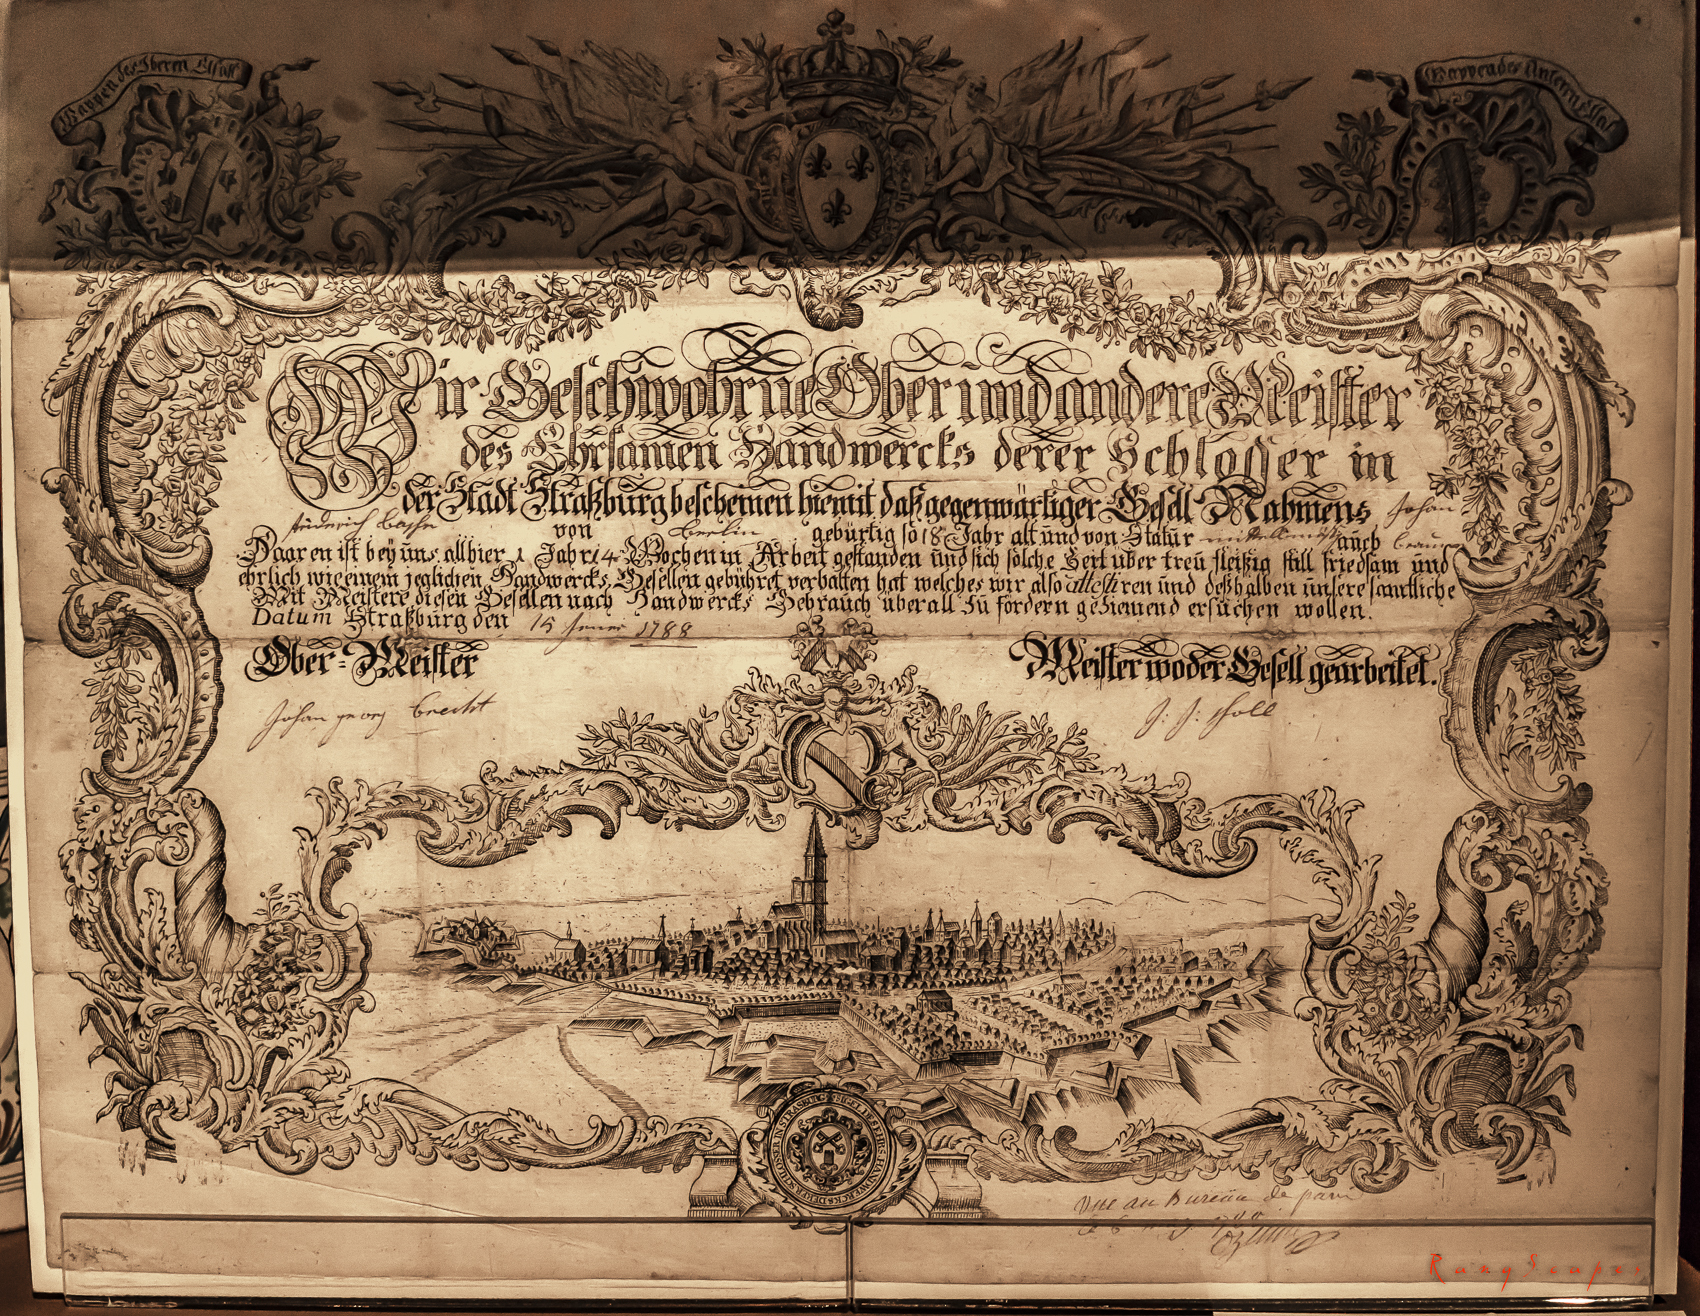 Wappen des Obern Elsaß
Wappen des Untern Elsas
Wir Geschwohrne Ober und andere Meister
des Ehrsamen Handwercks derer Schloßer in
der Stadt Straßburg bescheinen hiemit daß gegenwärtiger Gesell Nahmens Johan
friderich von Berlin gebürtig so 18 Jahr alt und von Statur mittelmäßig auch braun
Haaren ist bey uns allhier 1 Jahr 14 Wochen in Arbeit gestanden und sich solche Zeit über treu fleißig still friedsam und
ehrlich wie einem jeglichen Handwercks Gesellen gebühret verhalten hat welches wir also attestiren und deßhalben unsere samtliche
Mit Meistere diesen Gesellen nach Handwercks Gebrauch überall zu fördern geziemend ersuchen wollen.
Datum Straßburg den 15 1788
Ober-Meister
Meister wo der Gesell gearbeitet.
Johan georg brecht
J. J. Noll
SIGEL DES EHRS. HANDWERCKS DERER SCHLOSER IN STRASBURG
Vue au Bureau de
le 6
RanyScapes